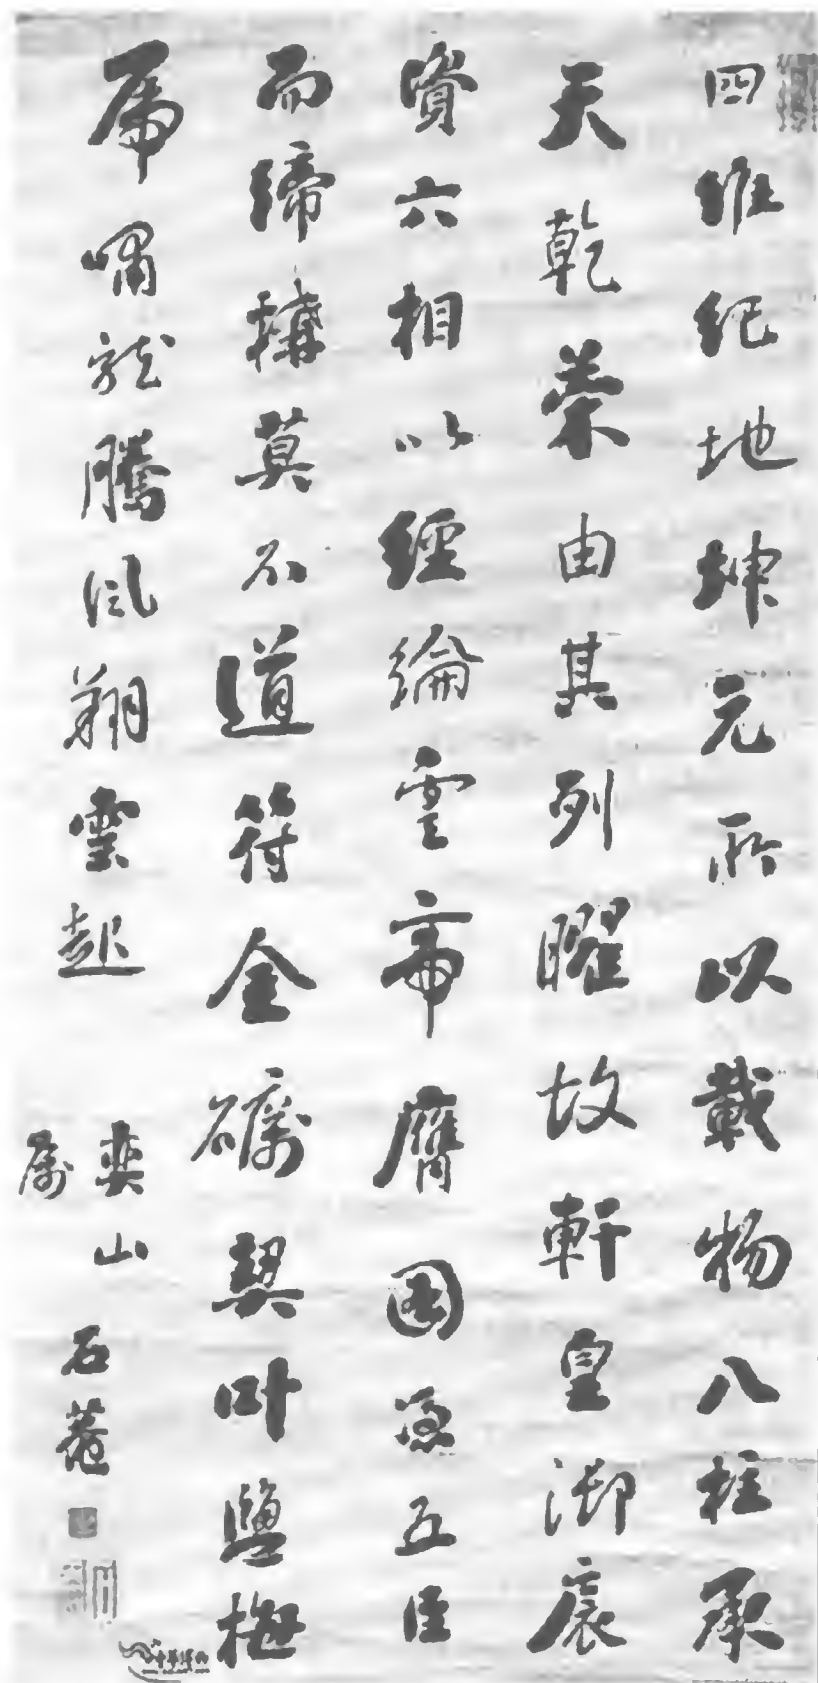 四維紀地坤元所以載物八柱承
天乾策由其列曜故軒皇御宸
資六相以經綸雲帝膺圖憑五臣
而締構莫不道符金礪契叶鹽梅
虎嘯龍騰風翔雲起
奕山
屬
石菴